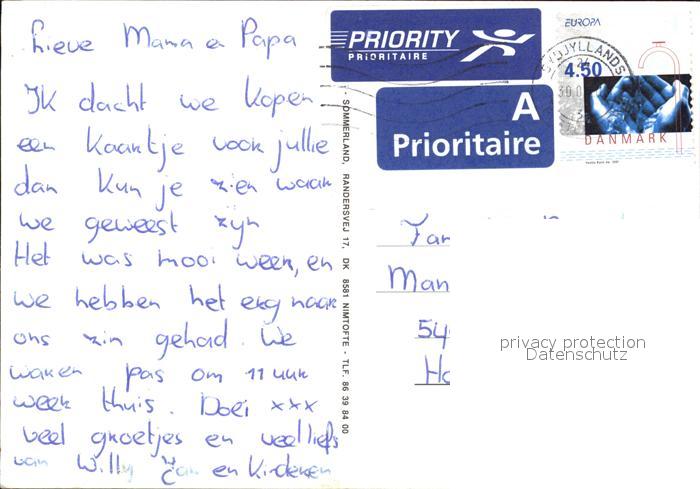 Lieve Mama en Papa
Ik dacht we kopen
een kaartje voor jullie
dan kun je zien waar
we geweest zijn
Het was mooi weer, en
we hebben het erg naar
ons zin gehad. We
waren pas om 11 uur
weer thuis. Doei xxx
veel groetjes en veel liefs
van Willy en Kinderen
SOMMERLAND, RANDERSVEJ 17, DK 8581 NIMTOFTE - TLF. 86 39 84 00
PRIORITY
PRIORITAIRE
A
Prioritaire
EUROPA
4.50
DANMARK
Fam
Man
54
Ho
privacy protection
Datenschutz